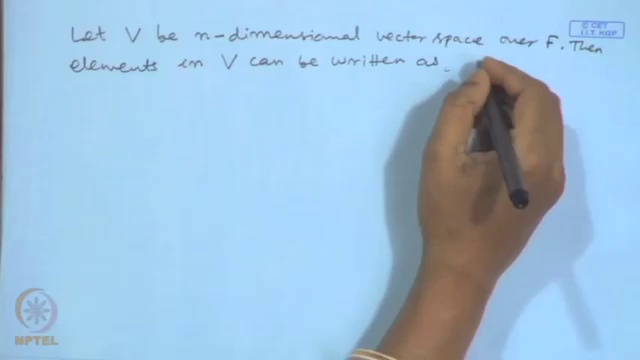 © CET
I.I.T. KGP
Let V be n-dimensional vector space over F. Then
elements in V can be written as
NPTEL